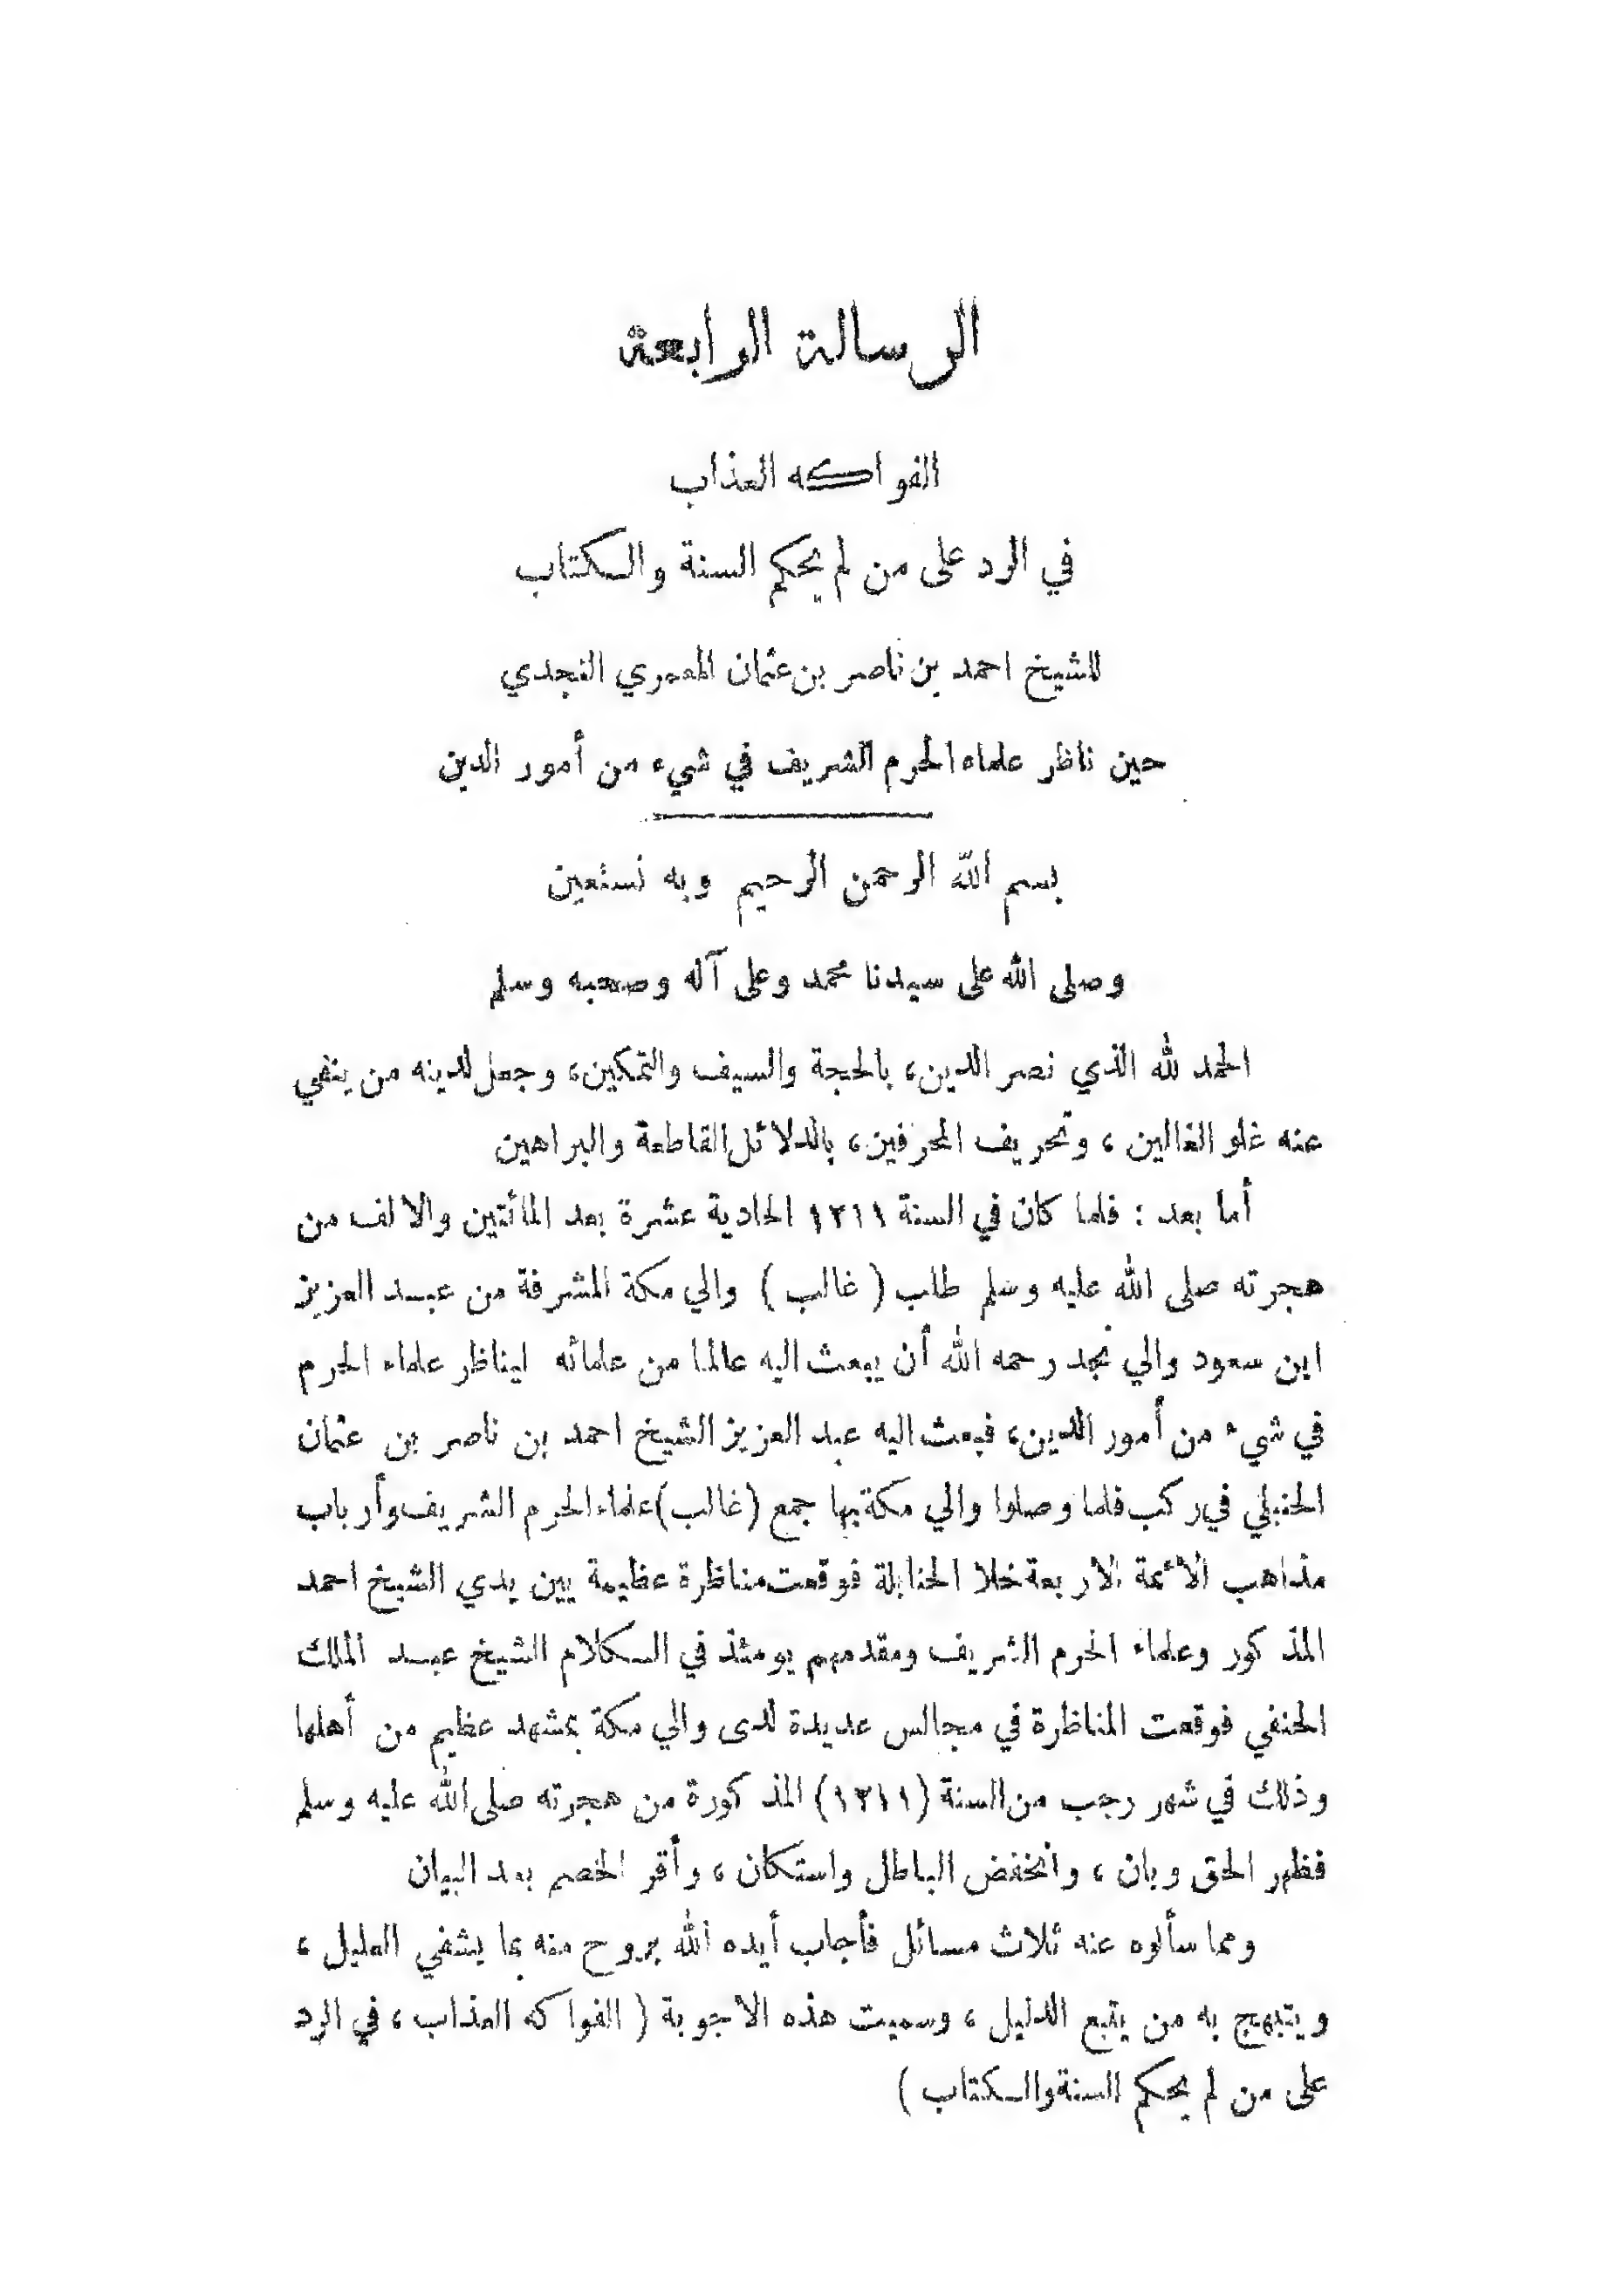 الرسالة الرابعة
الفواكه العذاب
في الرد على من لم يحكم السنة والكتاب
للشيخ احمد بن ناصر بن عثمان المعمري النجدي
حين ناظر علماء الحرم الشريف في شيء من أمور الدين
بسم الله الرحمن الرحيم وبه نستعين
وصلى الله على سيدنا محمد وعلى آله وصحبه وسلم
الحمد لله الذي نصر الدين، بالحجة والسيف والتمكين، وجعل لدينه من ينفي
عنه غلو الغالين ، وتحريف المحرفين، بالدلائل القاطعة والبراهين
أما بعد : فلما كان في السنة ١٢١١ الحادية عشرة بعد المائتين والالف من
هجرته صلى الله عليه وسلم طلب ( غالب ) والي مكة المشرفة من عبد العزيز
ابن سعود والي نجد رحمه الله أن يبعث اليه عالما من علمائه ليناظر علماء الحرم
في شيء من أمور الدين، فبعث اليه عبد العزيز الشيخ احمد بن ناصر بن عثمان
الحنبلي في ركب فلما وصلوا والي مكة بها جمع (غالب) علماء الحرم الشريف وأرباب
مذاهب الأئمة الاربعة خلا الحنابلة فوقعت مناظرة عظيمة بين يدي الشيخ احمد
المذكور وعلماء الحرم الشريف ومقدمهم يومئذ في الكلام الشيخ عبد الملك
الحنفي فوقعت المناظرة في مجالس عديدة لدى والي مكة بمشهد عظيم من أهلها
وذلك في شهر رجب من السنة (١٢١١) المذكورة من هجرته صلى الله عليه وسلم
فظهر الحق وبان ، وانخفض الباطل واستكان ، وأقر الخصم بعد البيان
ومما سألوه عنه ثلاث مسائل فأجاب أيده الله بروح منه بما يشفي العليل ،
ويتبهج به من يتبع الدليل ، وسميت هذه الاجوبة ( الفواكه العذاب ، في الرد
على من لم يحكم السنة والكتاب )